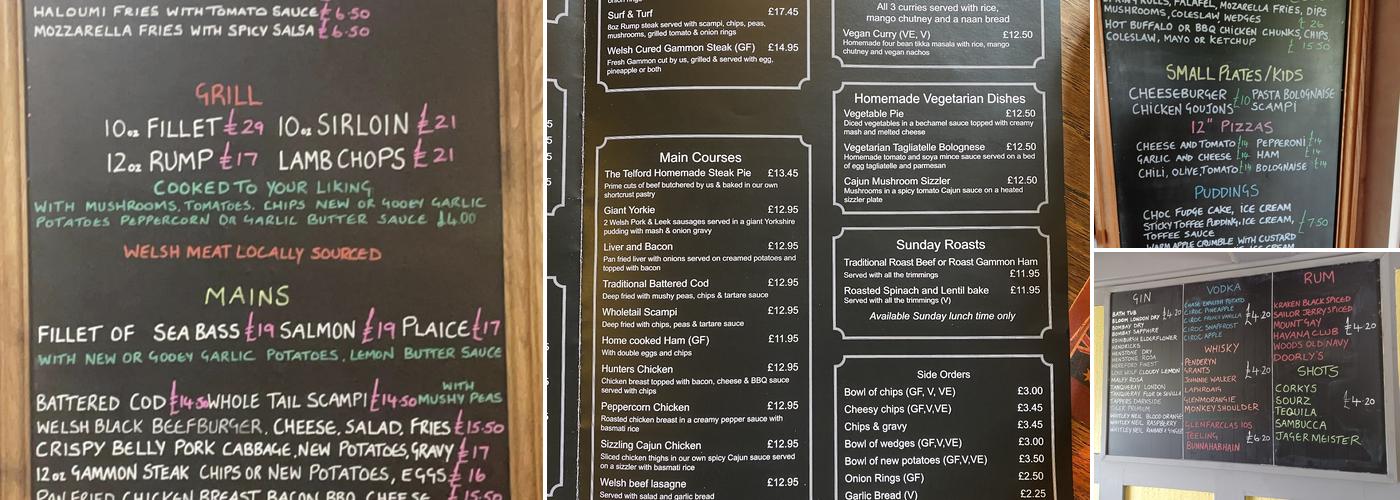 HALOUMI FRIES WITH TOMATO SAUCE £6.50
MOZZARELLA FRIES WITH SPICY SALSA £6.50
GRILL
10oz FILLET £29 10oz SIRLOIN £21
12oz RUMP £17 LAMB CHOPS £21
COOKED TO YOUR LIKING
WITH MUSHROOMS, TOMATOES, CHIPS NEW OR GOOEY GARLIC
POTATOES PEPPERCORN OR GARLIC BUTTER SAUCE £4.00
WELSH MEAT LOCALLY SOURCED
MAINS
FILLET OF SEA BASS £19 SALMON £19 PLAICE £17
WITH NEW OR GOOEY GARLIC POTATOES, LEMON BUTTER SAUCE
BATTERED COD £14.50 WHOLE TAIL SCAMPI £14.50 WITH MUSHY PEAS
WELSH BLACK BEEFBURGER, CHEESE, SALAD, FRIES £15.50
CRISPY BELLY PORK CABBAGE, NEW POTATOES, GRAVY £17
12oz GAMMON STEAK CHIPS OR NEW POTATOES, EGGS £16
PAN FRIED CHICKEN BREAST BACON BBQ CHEESE £15.50
Surf & Turf £17.45
8oz Rump steak served with scampi, chips, peas,
mushrooms, grilled tomato & onion rings
Welsh Cured Gammon Steak (GF) £14.95
Fresh Gammon cut by us, grilled & served with egg,
pineapple or both
Main Courses
The Telford Homemade Steak Pie £13.45
Prime cuts of beef butchered by us & baked in our own
shortcrust pastry
Giant Yorkie £12.95
2 Welsh Pork & Leek sausages served in a giant Yorkshire
pudding with mash & onion gravy
Liver and Bacon £12.95
Pan fried liver with onions served on creamed potatoes and
topped with bacon
Traditional Battered Cod £12.95
Deep fried with mushy peas, chips & tartare sauce
Wholetail Scampi £12.95
Deep fried with chips, peas & tartare sauce
Home cooked Ham (GF) £11.95
With double eggs and chips
Hunters Chicken £12.95
Chicken breast topped with bacon, cheese & BBQ sauce
served with chips
Peppercorn Chicken £12.95
Roasted chicken breast in a creamy pepper sauce with
basmati rice
Sizzling Cajun Chicken £12.95
Sliced chicken thighs in our own spicy Cajun sauce served
on a sizzler with basmati rice
Welsh beef lasagne £12.95
Served with salad and garlic bread
All 3 curries served with rice,
mango chutney and a naan bread
Vegan Curry (VE, V) £12.50
Homemade four bean tikka masala with rice, mango
chutney and vegan nachos
Homemade Vegetarian Dishes
Vegetable Pie £12.50
Diced vegetables in a bechamel sauce topped with creamy
mash and melted cheese
Vegetarian Tagliatelle Bolognese £12.50
Homemade tomato and soya mince sauce served on a bed
of egg tagliatelle and parmesan
Cajun Mushroom Sizzler £12.50
Mushrooms in a spicy tomato Cajun sauce on a heated
sizzler plate
Sunday Roasts
Traditional Roast Beef or Roast Gammon Ham
Served with all the trimmings £11.95
Roasted Spinach and Lentil bake £11.95
Served with all the trimmings (V)
Available Sunday lunch time only
Side Orders
Bowl of chips (GF, V, VE) £3.00
Cheesy chips (GF,V,VE) £3.45
Chips & gravy £3.45
Bowl of wedges (GF,V,VE) £3.00
Bowl of new potatoes (GF,V,VE) £3.50
Onion Rings (GF) £2.50
Garlic Bread (V) £2.25
ROLLS, FALAFEL, MOZARELLA FRIES, DIPS
MUSHROOMS, COLESLAW, WEDGES £26
HOT BUFFALO OR BBQ CHICKEN CHUNKS, CHIPS,
COLESLAW, MAYO OR KETCHUP £15.50
SMALL PLATES/KIDS
CHEESEBURGER £10 PASTA BOLOGNAISE
CHICKEN GOUJONS SCAMPI
12" PIZZAS
CHEESE AND TOMATO £14 PEPPERONI £14
GARLIC AND CHEESE £14 HAM £14
CHILI, OLIVE, TOMATO £14 BOLOGNAISE £14
PUDDINGS
CHOC FUDGE CAKE, ICE CREAM
STICKY TOFFEE PUDDING, ICE CREAM, £7.50
TOFFEE SAUCE
WARM APPLE CRUMBLE WITH CUSTARD
GIN
BATH TUB £4.20
BLOOM LONDON DRY
BOMBAY DRY
BOMBAY SAPPHIRE
EDINBURGH ELDERFLOWER
HENDRICKS
HENSTONE DRY
HENSTONE ROSA
HEREFORD FINEST
LONE WOLF CLOUDY LEMON
MALFY ROSA
TANQUERAY LONDON
TANQUERAY FLOR DE SEVILLA
TAPPERS DARKSIDE
TIGER PREMIUM
WHITLEY NEIL BLOOD ORANGE
WHITLEY NEIL RASPBERRY
WHITLEY NEIL RHUBARB & GINGER
VODKA
CHASE ENGLISH POTATO
CIROC PINEAPPLE
CIROC FRENCH VANILLA £4.20
CIROC SNAP FROST
CIROC APPLE
WHISKY
PENDERYN
GRANTS
JOHNNIE WALKER £4.20
LAPHROAIG
GLENMORANGIE
MONKEY SHOULDER
GLENFARCLAS 105
TEELING £6.20
BUNNAHABHAIN
RUM
KRAKEN BLACK SPICED
SAILOR JERRY SPICED
MOUNT GAY
HAVANA CLUB £4.20
WOODS OLD NAVY
DOORLY'S
SHOTS
CORKYS
SOURZ £4.20
TEQUILA
SAMBUCCA
JAGERMEISTER